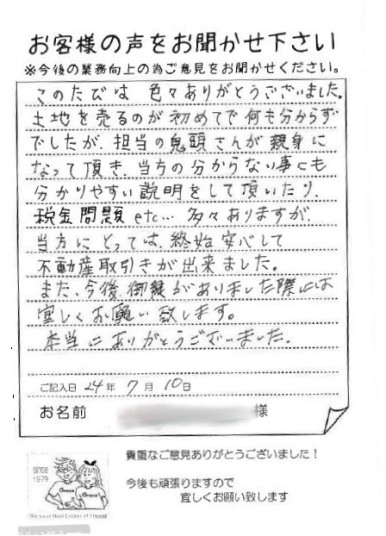 お客様の声をお聞かせ下さい
※今後の業務向上の為ご意見をお聞かせください。
このたびは 色々ありがとうございました。
土地を売るのが初めてで何も分からず
でしたが、担当の鬼頭さんが親身に
なって頂き、当方の分からない事にも
分かりやすい説明をして頂いたり、
税金問題etc… 多々ありますが、
当方にとっては、終始安心して
不動産取引きが出来ました。
また、今後、御縁がありました際には
宜しくお願い致します。
本当にありがとうございました。
ご記入日 24年 7月 10日
お名前 様
貴重なご意見ありがとうございました!
今後も頑張りますので
宜しくお願い致します
SINCE
1979